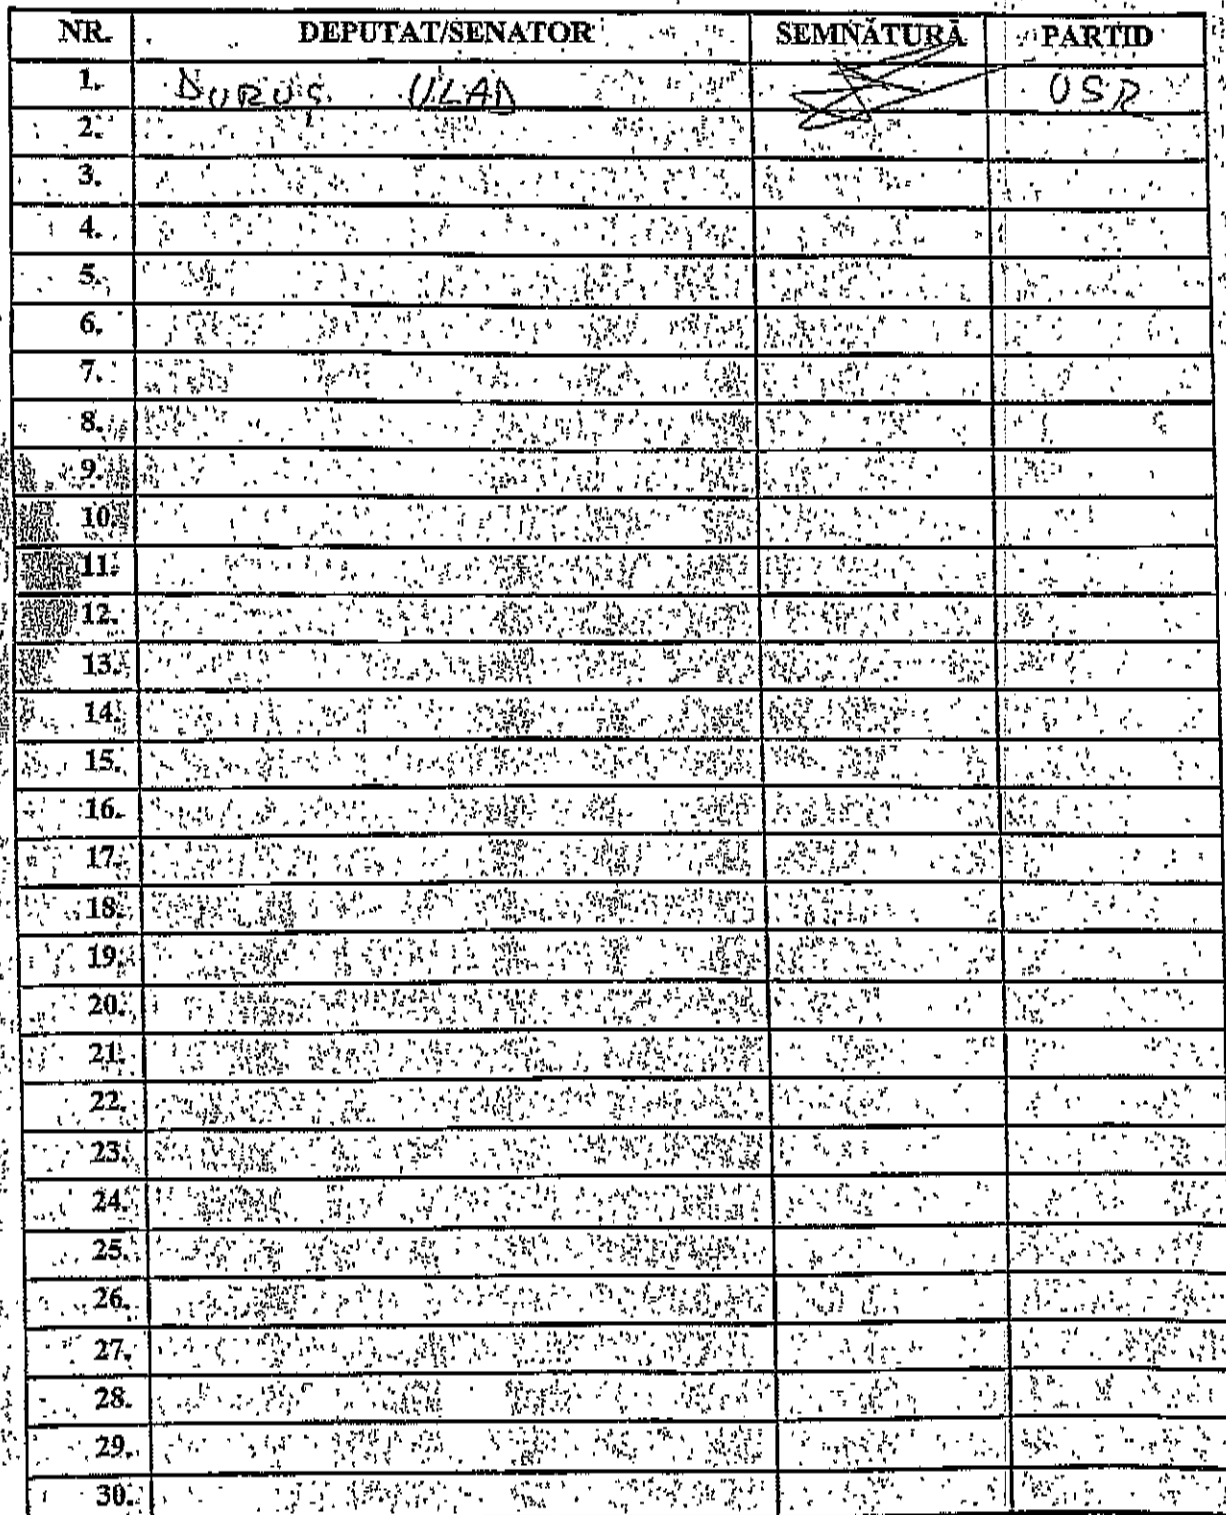 NR. DEPUTAT/SENATOR SEMNĂTURĂ PARTID
1. DURUȘ VLAD USR
2.
3.
4.
5.
6.
7.
8.
9.
10.
11.
12.
13.
14.
15.
16.
17.
18.
19.
20.
21.
22.
23.
24.
25.
26.
27.
28.
29.
30.